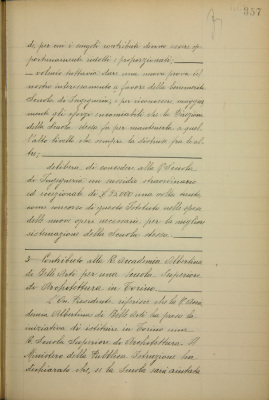 357
di, per cui i singoli contributi devono essere op-
portunamente ridotti e proporzionati;
volendo tuttavia dare una nuova prova del
nostro interessamento a favore della benemerita
Scuola di Ingegneria, e per riconoscere maggior-
mente gli sforzi encomiabili che la Direzione
della Scuola stessa fa per mantenerla a quel-
l'alto livello che sempre la distinse fra le al-
tre;
delibera di concedere alla R. Scuola
di Ingegneria un sussidio straordinario
ed eccezionale di £ 25.000 una volta tanto
come concorso di questo Istituto nelle spese
delle nuove opere necessarie per la migliore
sistemazione della Scuola stessa.
3 - Contributo alla R. Accademia Albertina
di Belle Arti per una Scuola Superiore
di Architettura in Torino.
L'On. Presidente riferisce che la R. Acca-
demia Albertina di Belle Arti ha preso la
iniziativa di istituire in Torino una
R. Scuola Superiore di Architettura. Il
Ministro della Pubblica Istruzione ha
dichiarato che, se la Scuola sarà aiutata